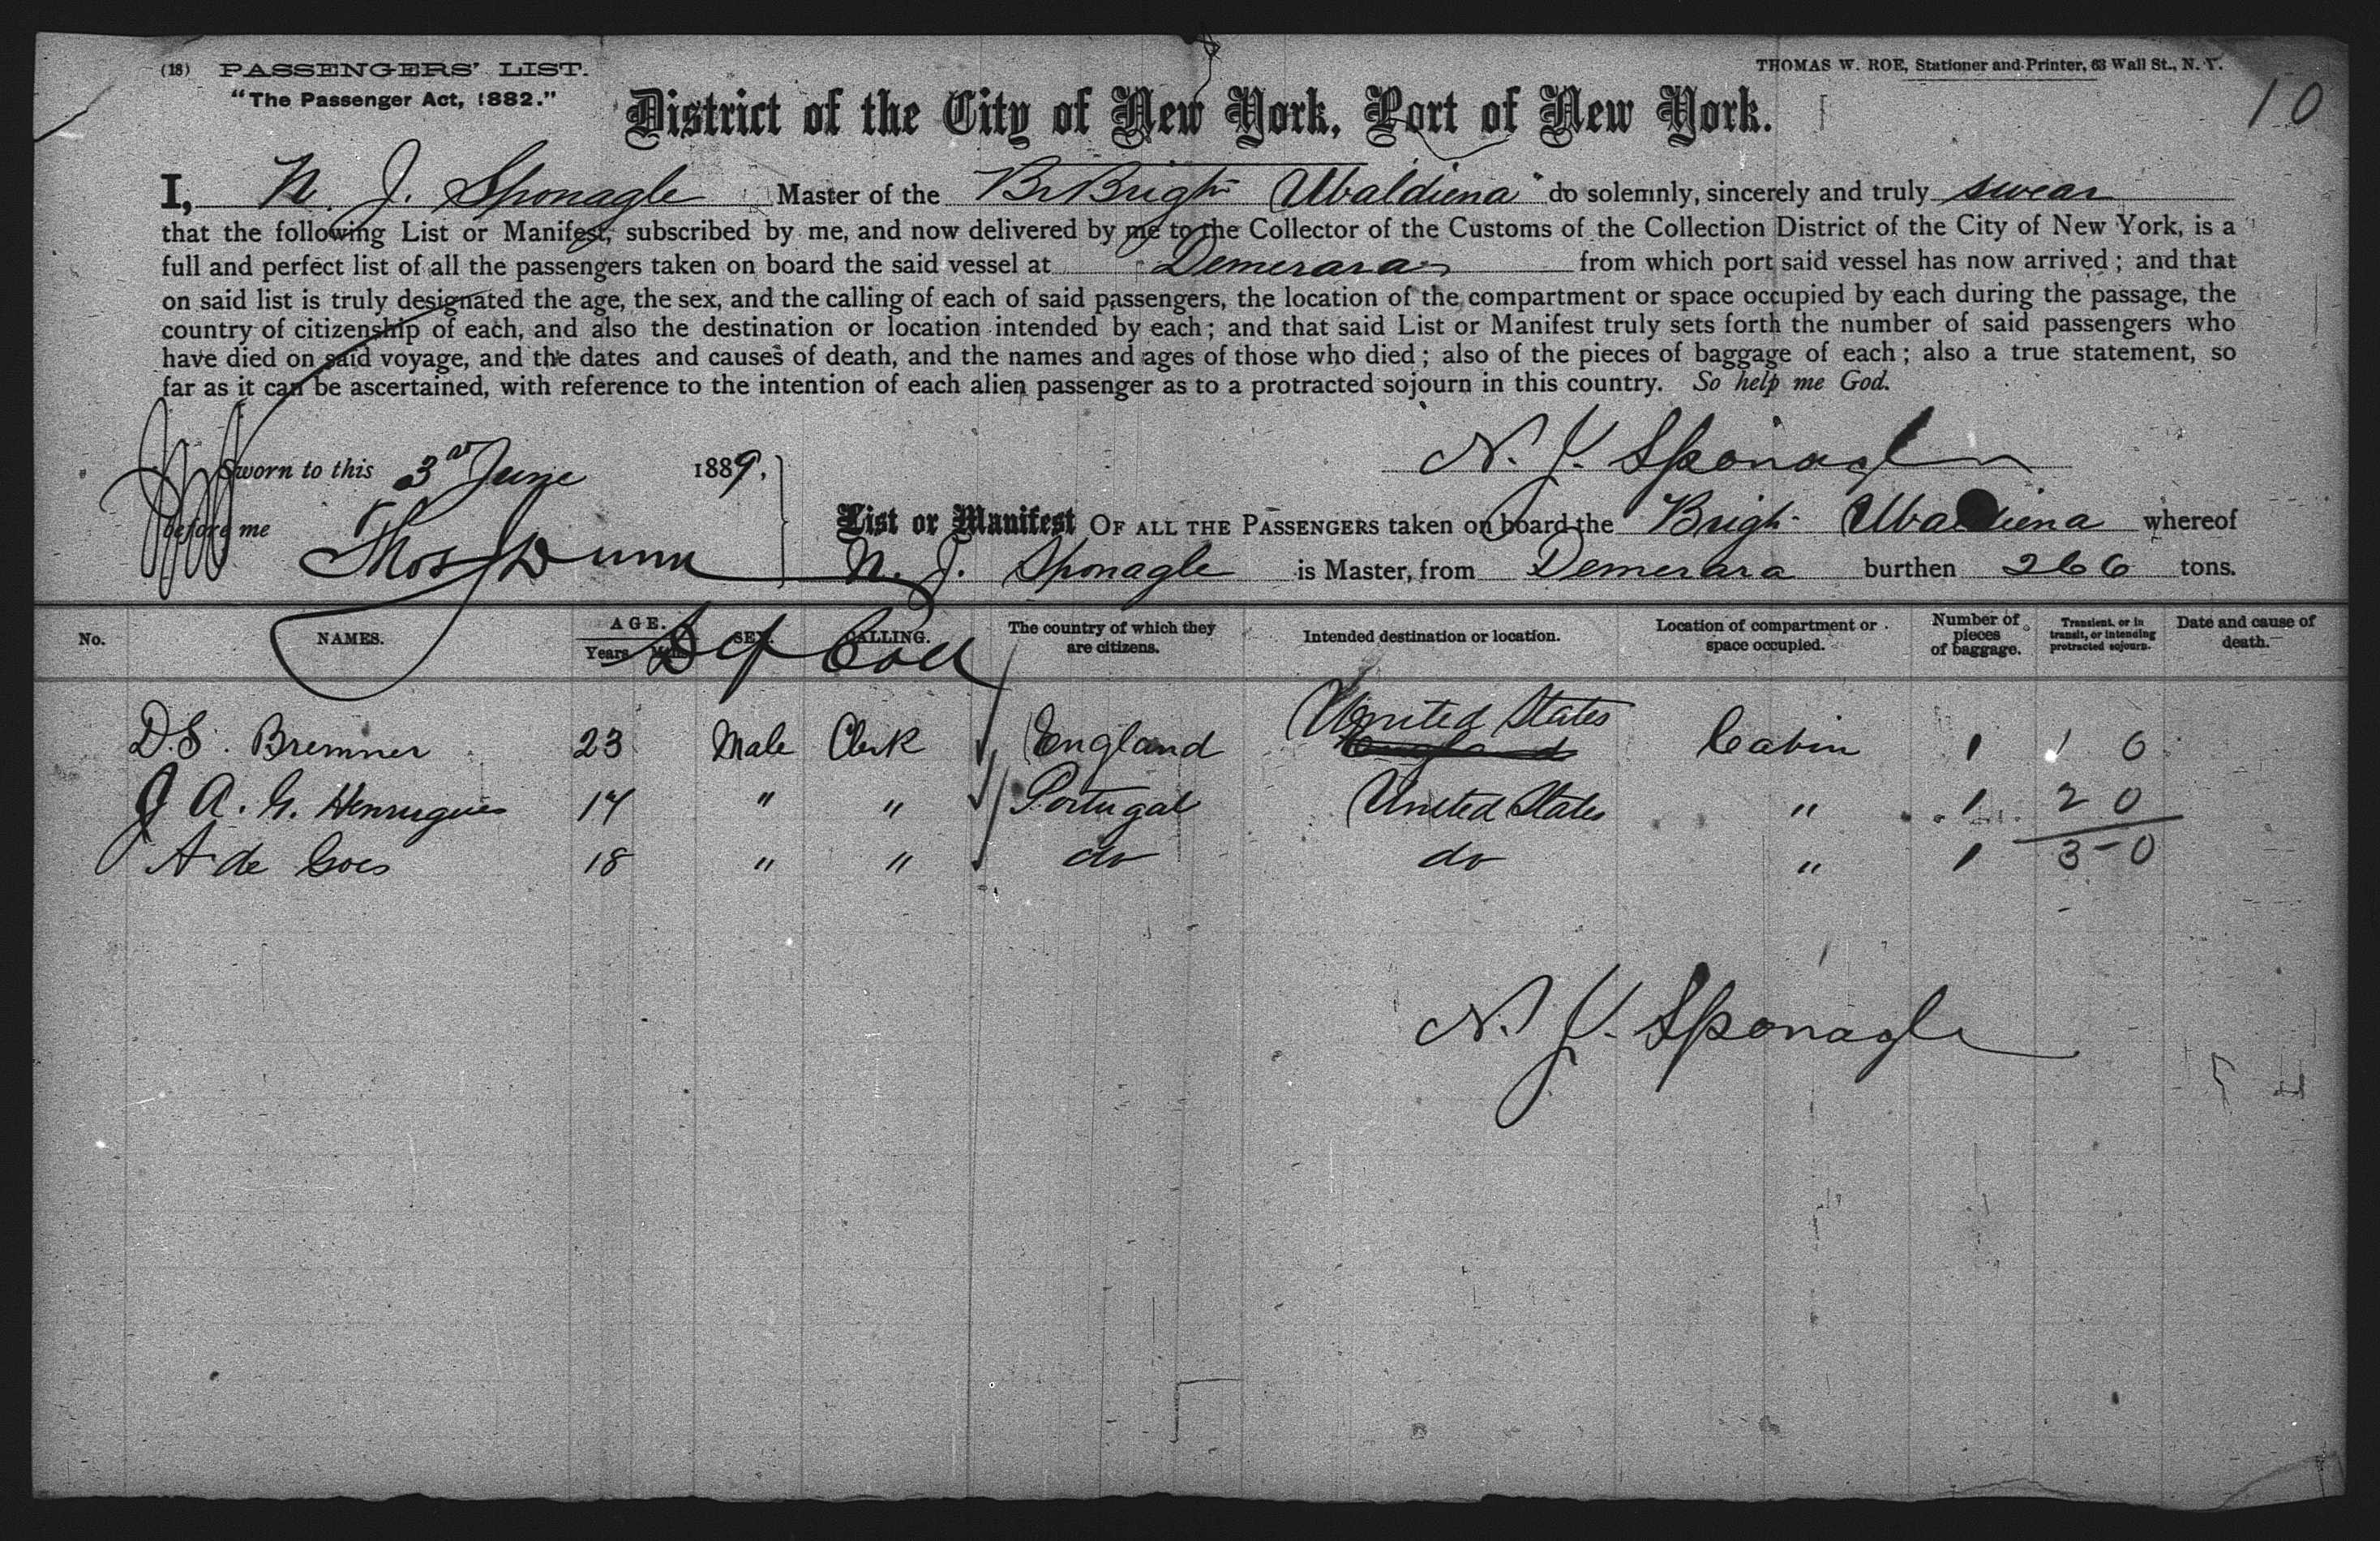 (18) PASSENGERS' LIST.
"The Passenger Act, 1882."
THOMAS W. ROE, Stationer and Printer, 63 Wall St., N. Y.
10
District of the City of New York, Port of New York.
I, N. J. Sponagle Master of the Br Brigt Ubaldiena do solemnly, sincerely and truly swear
that the following List or Manifest, subscribed by me, and now delivered by me to the Collector of the Customs of the Collection District of the City of New York, is a
full and perfect list of all the passengers taken on board the said vessel at Demerara from which port said vessel has now arrived; and that
on said list is truly designated the age, the sex, and the calling of each of said passengers, the location of the compartment or space occupied by each during the passage, the
country of citizenship of each, and also the destination or location intended by each; and that said List or Manifest truly sets forth the number of said passengers who
have died on said voyage, and the dates and causes of death, and the names and ages of those who died; also of the pieces of baggage of each; also a true statement, so
far as it can be ascertained, with reference to the intention of each alien passenger as to a protracted sojourn in this country. So help me God.
N. J. Sponagle
Sworn to this 3rd June 1889,
before me Thos Dunn
Dep Coll
List or Manifest OF ALL THE PASSENGERS taken on board the Brigt Ubaldiena whereof
N. J. Sponagle is Master, from Demerara burthen 266 tons.
No. NAMES. AGE. Years Mths SEX. CALLING. The country of which they are citizens. Intended destination or location. Location of compartment or space occupied. Number of pieces of baggage. Transient, or in transit, or intending protracted sojourn. Date and cause of death.
D. S. Bremner 23 Male Clerk England United States England Cabin 1 1 0
J A. G. Henrugues 17 " " Portugal United States " 1 2 0
A de Goes 18 " " do do " 1 3-0
N. J. Sponagle